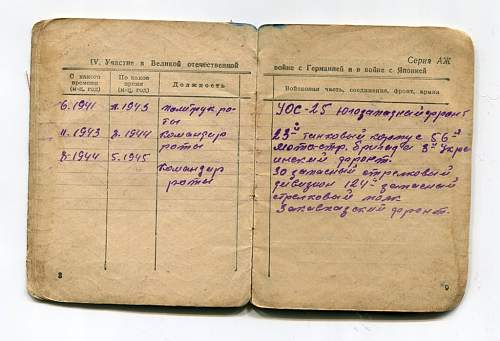 IV. Участие в Великой отечественной
С какого времени (м-ц, год)
По какое время (м-ц, год)
Должность
6.1941
11.1943
политрук ро-
ты
11.1943
2.1944
Командир
роты
5.1945
Командир
роты
8
Серия АЖ
войне с Германией и в войне с Японией
Войсковая часть, соединение, фронт, армия
УОС-25 Югозападный фронт
23й танковый корпус 56й
мото-стр. бригада 3й Укра
инский фронт.
30 запасной стрелковый
дивизион 124й запасной
стрелковый полк
Закавказский фронт.
9